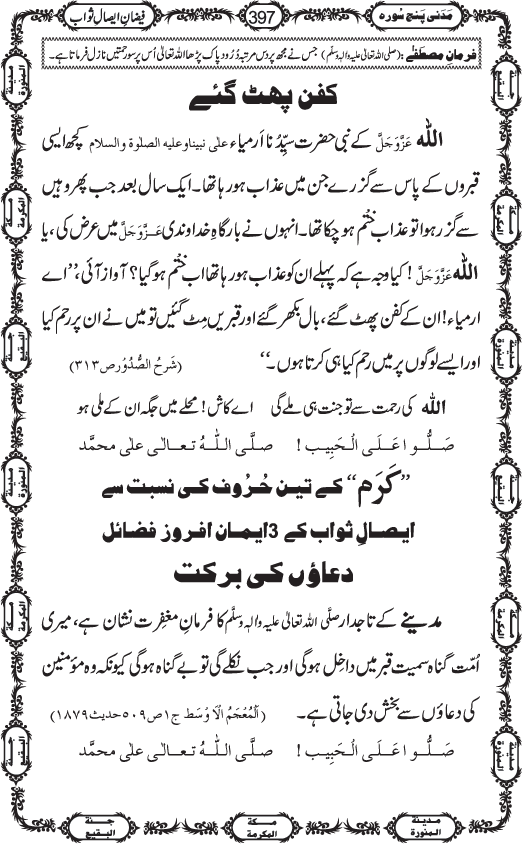 مَدَنی پنج سورہ 397 فیضانِ ایصالِ ثواب
فرمانِ مصطفٰے : (صلی اللہ تعالیٰ علیہ والہٖ وسلّم) جس نے مجھ پر دس مرتبہ دُرُود پاک پڑھا اللہ تعالیٰ اُس پر سو رحمتیں نازل فرماتا ہے۔
کفن پھٹ گئے
اللہ عَزَّوَجَلَّ کے نبی حضرتِ سیِّدُنا اَرمیاء علٰی نبیناوعلیہ الصلوٰۃ والسلام کچھ ایسی
قبروں کے پاس سے گزرے جن میں عذاب ہو رہا تھا۔ ایک سال بعد جب پھر وہیں
سے گزر ہوا تو عذاب ختْم ہو چکا تھا۔ انہوں نے بارگاہِ خداوندی عَزَّوَجَلَّ میں عرض کی، یا
اللہ عَزَّوَجَلَّ! کیا وجہ ہے کہ پہلے ان کو عذاب ہو رہا تھا اب ختْم ہو گیا؟ آواز آئی، ’’اے
ارمیاء! ان کے کفن پھٹ گئے، بال بکھر گئے اور قبریں مِٹ گئیں تو میں نے ان پر رحم کیا
اور ایسے لوگوں پر میں رحم کیا ہی کرتا ہوں۔‘‘ (شَرحُ الصُّدُوْر ص ۳۱۳)
اللہ کی رحمت سے تو جنت ہی ملے گی اے کاش! محلے میں جگہ ان کے ملی ہو
صَلُّوا عَلَی الْحَبِیب! صلَّی اللّٰہُ تعالٰی علٰی محمَّد
’’کَرَم‘‘ کے تین حُرُوف کی نسبت سے
ایصالِ ثواب کے 3ایمان افروز فضائل
دعاؤں کی برکت
مدینے کے تاجدار صلَّی اللہ تعالیٰ علیہ والہٖ وسلَّم کا فرمانِ مغفِرت نشان ہے، میری
اُمّت گناہ سمیت قبر میں داخل ہوگی اور جب نکلے گی تو بے گناہ ہوگی کیونکہ وہ مؤمنین
کی دعاؤں سے بخش دی جاتی ہے۔ (اَلْمُعْجَمُ الْاَوْسَط ج۱ ص۵۰۹ حدیث ۱۸۷۹)
صَلُّوا عَلَی الْحَبِیب! صلَّی اللّٰہُ تعالٰی علٰی محمَّد
جنۃ البقیع
مکۃ المکرمۃ
مدینۃ المنورۃ